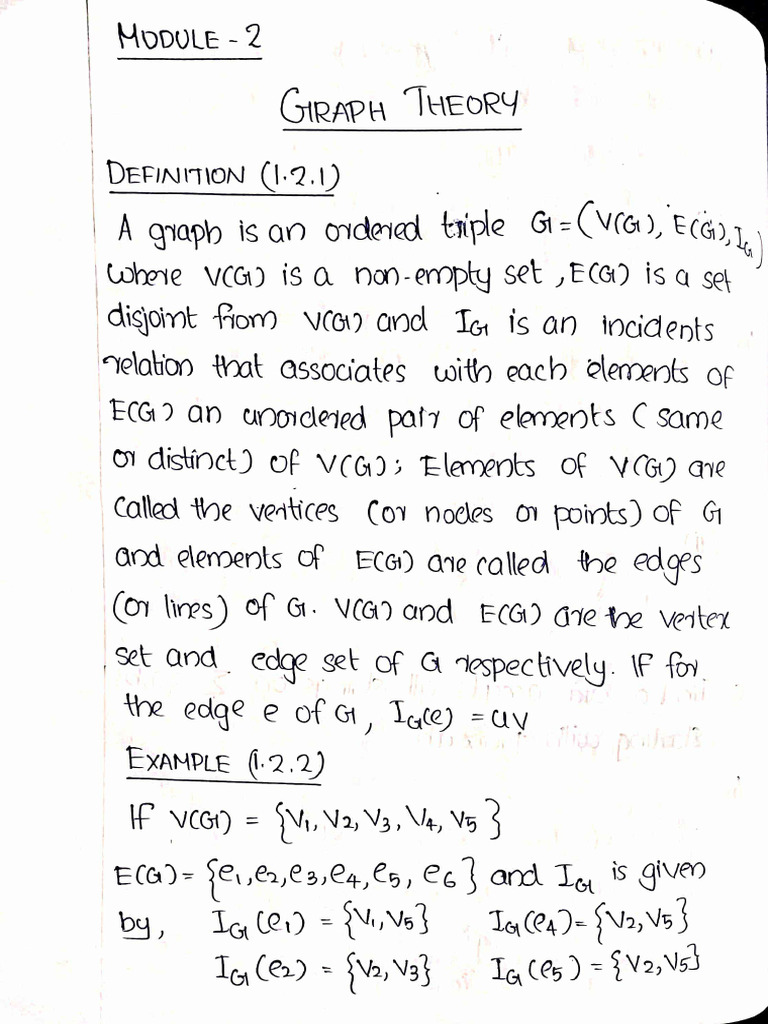 MODULE - 2
GRAPH THEORY
DEFINITION (1.2.1)
A graph is an ordered triple G = (V(G), E(G), I_G)
where V(G) is a non-empty set, E(G) is a set
disjoint from V(G) and I_G is an incidents
relation that associates with each elements of
E(G) an unordered pair of elements (same
or distinct) of V(G); Elements of V(G) are
called the vertices (or nodes or points) of G
and elements of E(G) are called the edges
(or lines) of G. V(G) and E(G) are the vertex
set and edge set of G respectively. If for
the edge e of G, I_G(e) = uv
EXAMPLE (1.2.2)
If V(G) = {V1, V2, V3, V4, V5}
E(G) = {e1, e2, e3, e4, e5, e6} and I_G is given
by, I_G(e1) = {V1, V5} I_G(e4) = {V2, V5}
I_G(e2) = {V2, V3} I_G(e5) = {V2, V5}